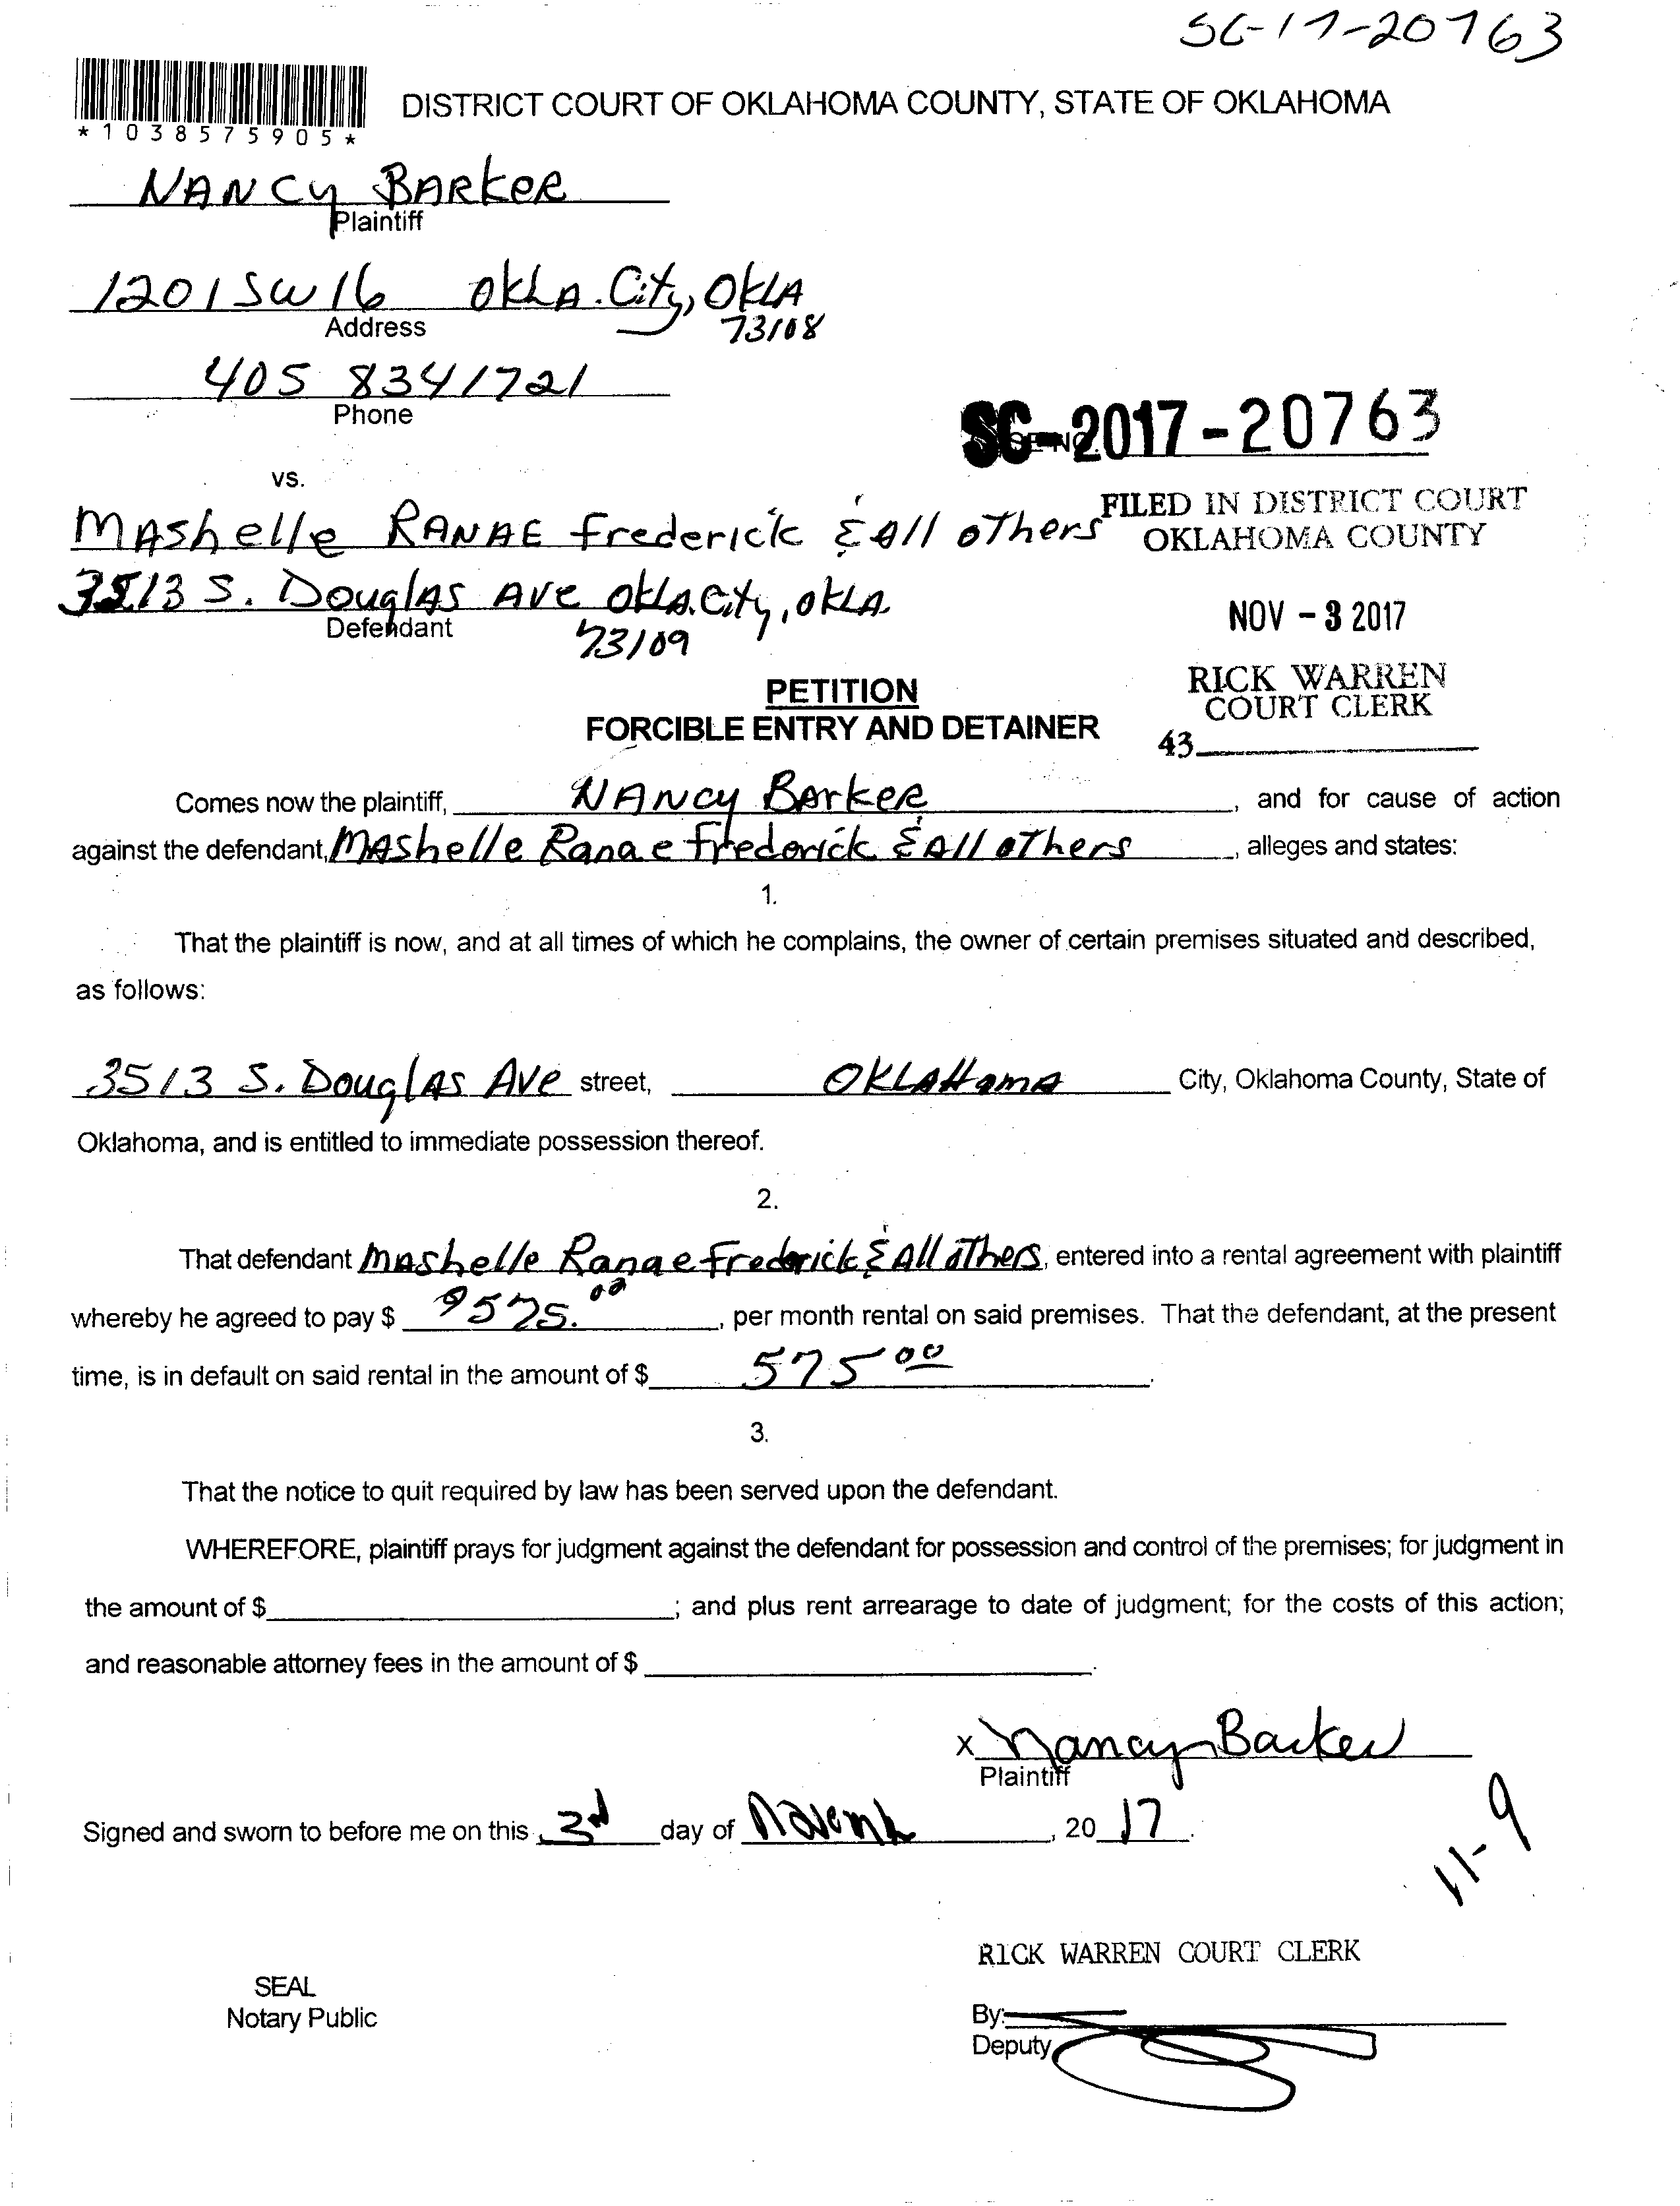 SC-17-20763
*1038575905*
DISTRICT COURT OF OKLAHOMA COUNTY, STATE OF OKLAHOMA
NANCY BARKER
Plaintiff
1201 SW 16 OKLA. City, OKLA
Address
73108
405 834 1721
Phone
SC-2017-20763
vs.
MAShelle RANAE Frederick & All oThers
FILED IN DISTRICT COURT
OKLAHOMA COUNTY
3513 S. DouglAS AVE OKLA. City, OKLA.
Defendant
73109
NOV - 3 2017
RICK WARREN
COURT CLERK
43
PETITION
FORCIBLE ENTRY AND DETAINER
Comes now the plaintiff, NANCY BARKER, and for cause of action
against the defendant, MAShelle Ranae Frederick & All oThers, alleges and states:
1.
That the plaintiff is now, and at all times of which he complains, the owner of certain premises situated and described,
as follows:
3513 S. DouglAS AVE street, OKLAHomA City, Oklahoma County, State of
Oklahoma, and is entitled to immediate possession thereof.
2.
That defendant MAShelle Ranae Frederick & All oThers, entered into a rental agreement with plaintiff
whereby he agreed to pay $ 575.00, per month rental on said premises. That the defendant, at the present
time, is in default on said rental in the amount of $ 575 00.
3.
That the notice to quit required by law has been served upon the defendant.
WHEREFORE, plaintiff prays for judgment against the defendant for possession and control of the premises; for judgment in
the amount of $; and plus rent arrearage to date of judgment; for the costs of this action;
and reasonable attorney fees in the amount of $.
X Nancy Barker
Plaintiff
Signed and sworn to before me on this 3rd day of Novemb, 20 17.
11-9
RICK WARREN COURT CLERK
SEAL
Notary Public
By:
Deputy